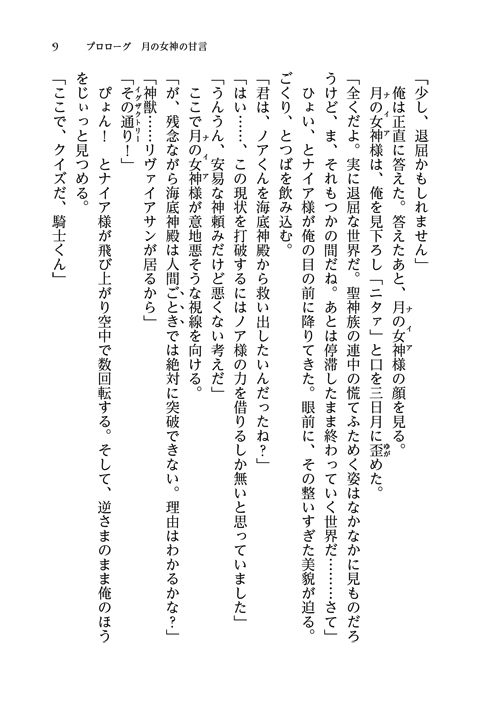 9　プロローグ　月の女神の甘言
「少し、退屈かもしれません」
　俺は正直に答えた。答えたあと、月の女神様の顔を見る。
　月の女神様は、俺を見下ろし「ニタァ」と口を三日月に歪めた。
「全くだよ。実に退屈な世界だ。聖神族の連中の慌てふためく姿はなかなかに見ものだろ
うけど、ま、それもつかの間だね。あとは停滞したまま終わっていく世界だ………さて」
　ひょい、とナイア様が俺の目の前に降りてきた。眼前に、その整いすぎた美貌が迫る。
ごくり、とつばを飲み込む。
「君は、ノアくんを海底神殿から救い出したいんだったね？」
「はい……、この現状を打破するにはノア様の力を借りるしか無いと思っていました」
「うんうん、安易な神頼みだけど悪くない考えだ」
　ここで月の女神様が意地悪そうな視線を向ける。
「が、残念ながら海底神殿は人間ごときでは絶対に突破できない。理由はわかるかな？」
「神獣……リヴァイアサンが居るから」
「その通り！」
　ぴょん！　とナイア様が飛び上がり空中で数回転する。そして、逆さまのまま俺のほう
をじぃっと見つめる。
「ここで、クイズだ、騎士くん」